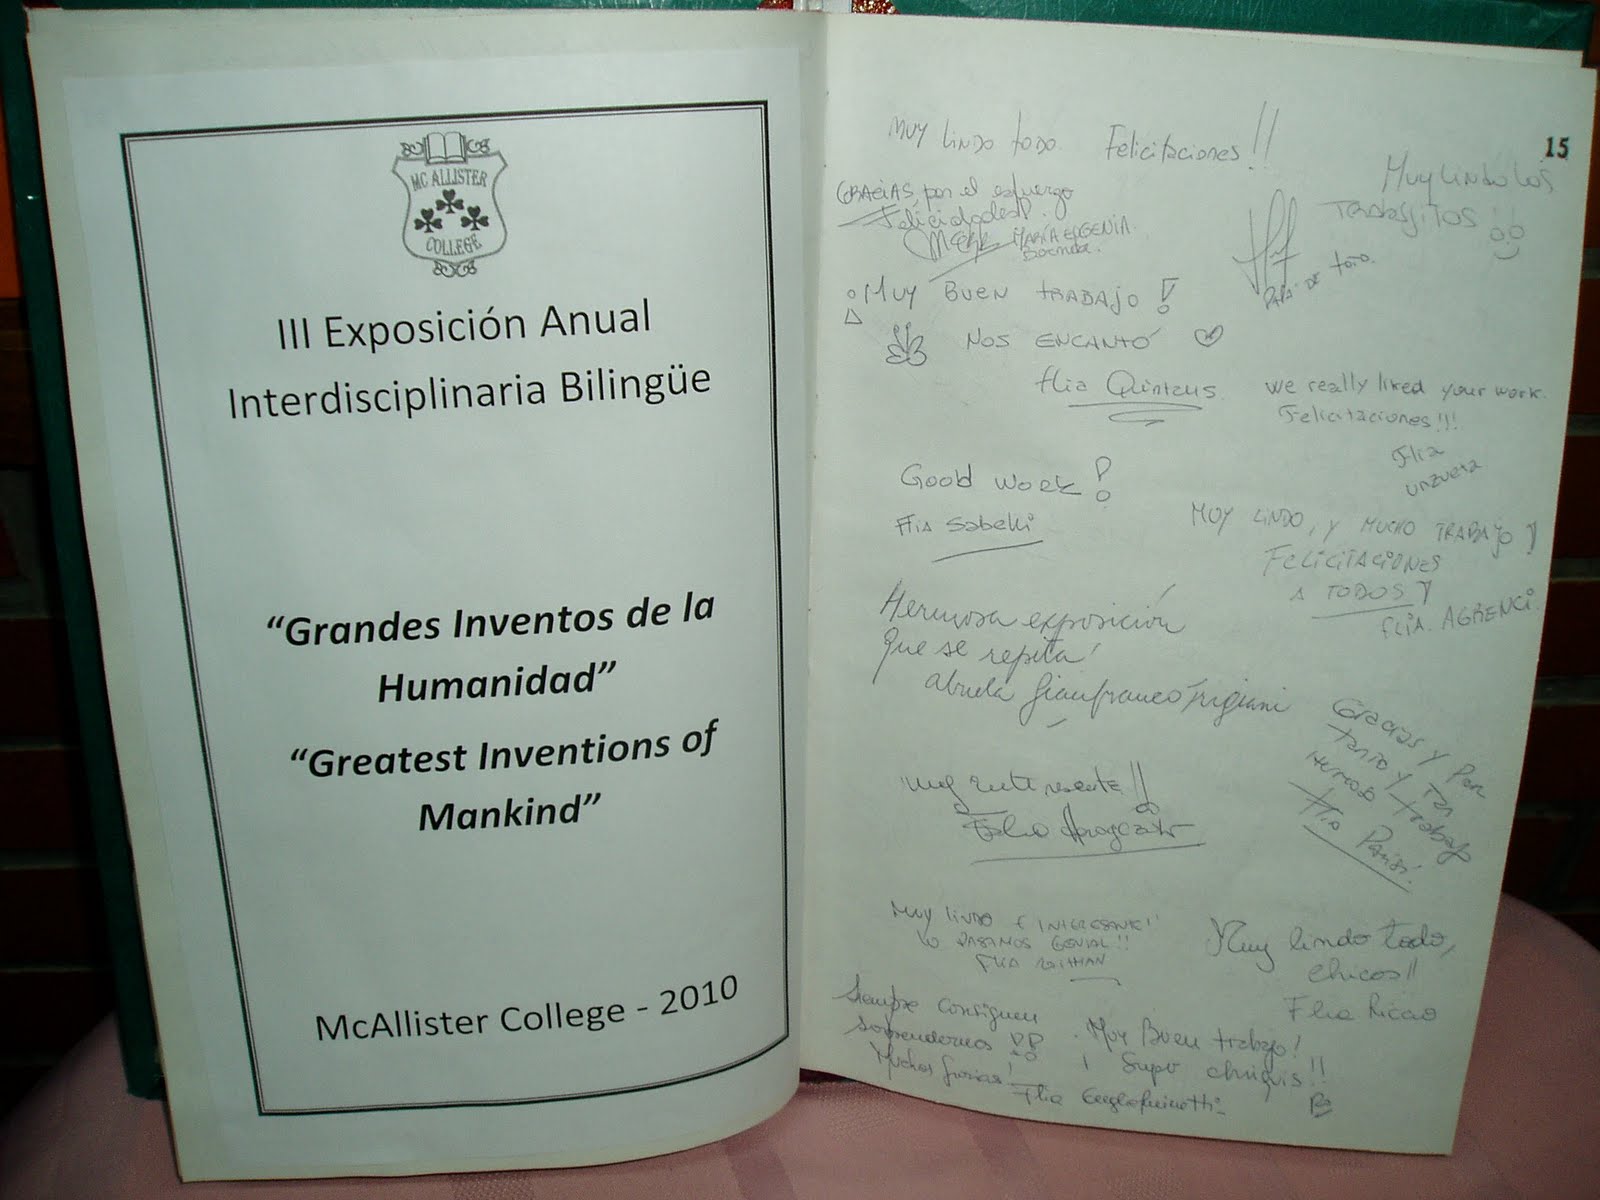 MC ALLISTER
COLLEGE
III Exposición Anual
Interdisciplinaria Bilingüe
“Grandes Inventos de la
Humanidad”
“Greatest Inventions of
Mankind”
McAllister College - 2010
15
MUY LINDO TODO. Felicitaciones!!
GRACIAS, por el esfuerzo
Felicidades!
MARÍA EUGENIA
MUY LINDO LOS
TRABAJITOS
PAPÁ DE TOTO.
¡MUY BUEN TRABAJO!
NOS ENCANTÓ
flia Quinteus
we really liked your work.
Felicitaciones!!!
Flia
unzueta
Good work!
Flia Sabelli
MUY LINDO, y MUCHO TRABAJO!
FELICITACIONES
A TODOS!
FLIA. AGRENCI.
Hermosa exposición
Que se repita!
abuela Gianfranco Frigiani
Gracias y por
tanto y tan
Hermoso trabajo
Flia Parisi.
Muy interesante!!
MUY LINDO E INTERESANTE!!
LO PASAMOS GENIAL!!
FLIA
Muy lindo todo,
chicos!!
Flia Ricao
Siempre consiguen
sorprendernos
Muchas gracias!
Flia
Muy Buen trabajo!
¡Super chuguis!!